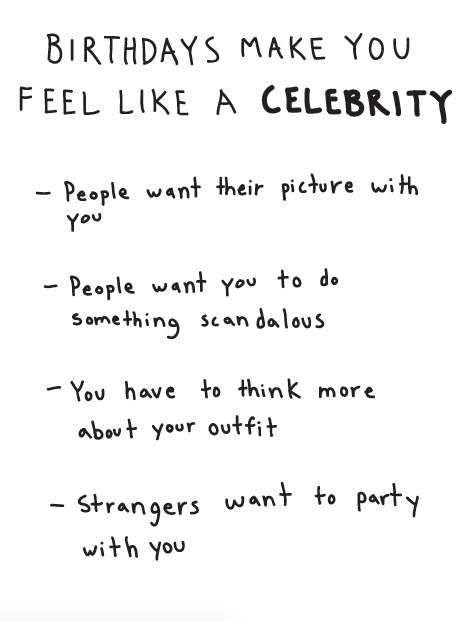 BIRTHDAYS MAKE YOU
FEEL LIKE A CELEBRITY
- People want their picture with
you
- People want you to do
something scandalous
- You have to think more
about your outfit
- Strangers want to party
with you